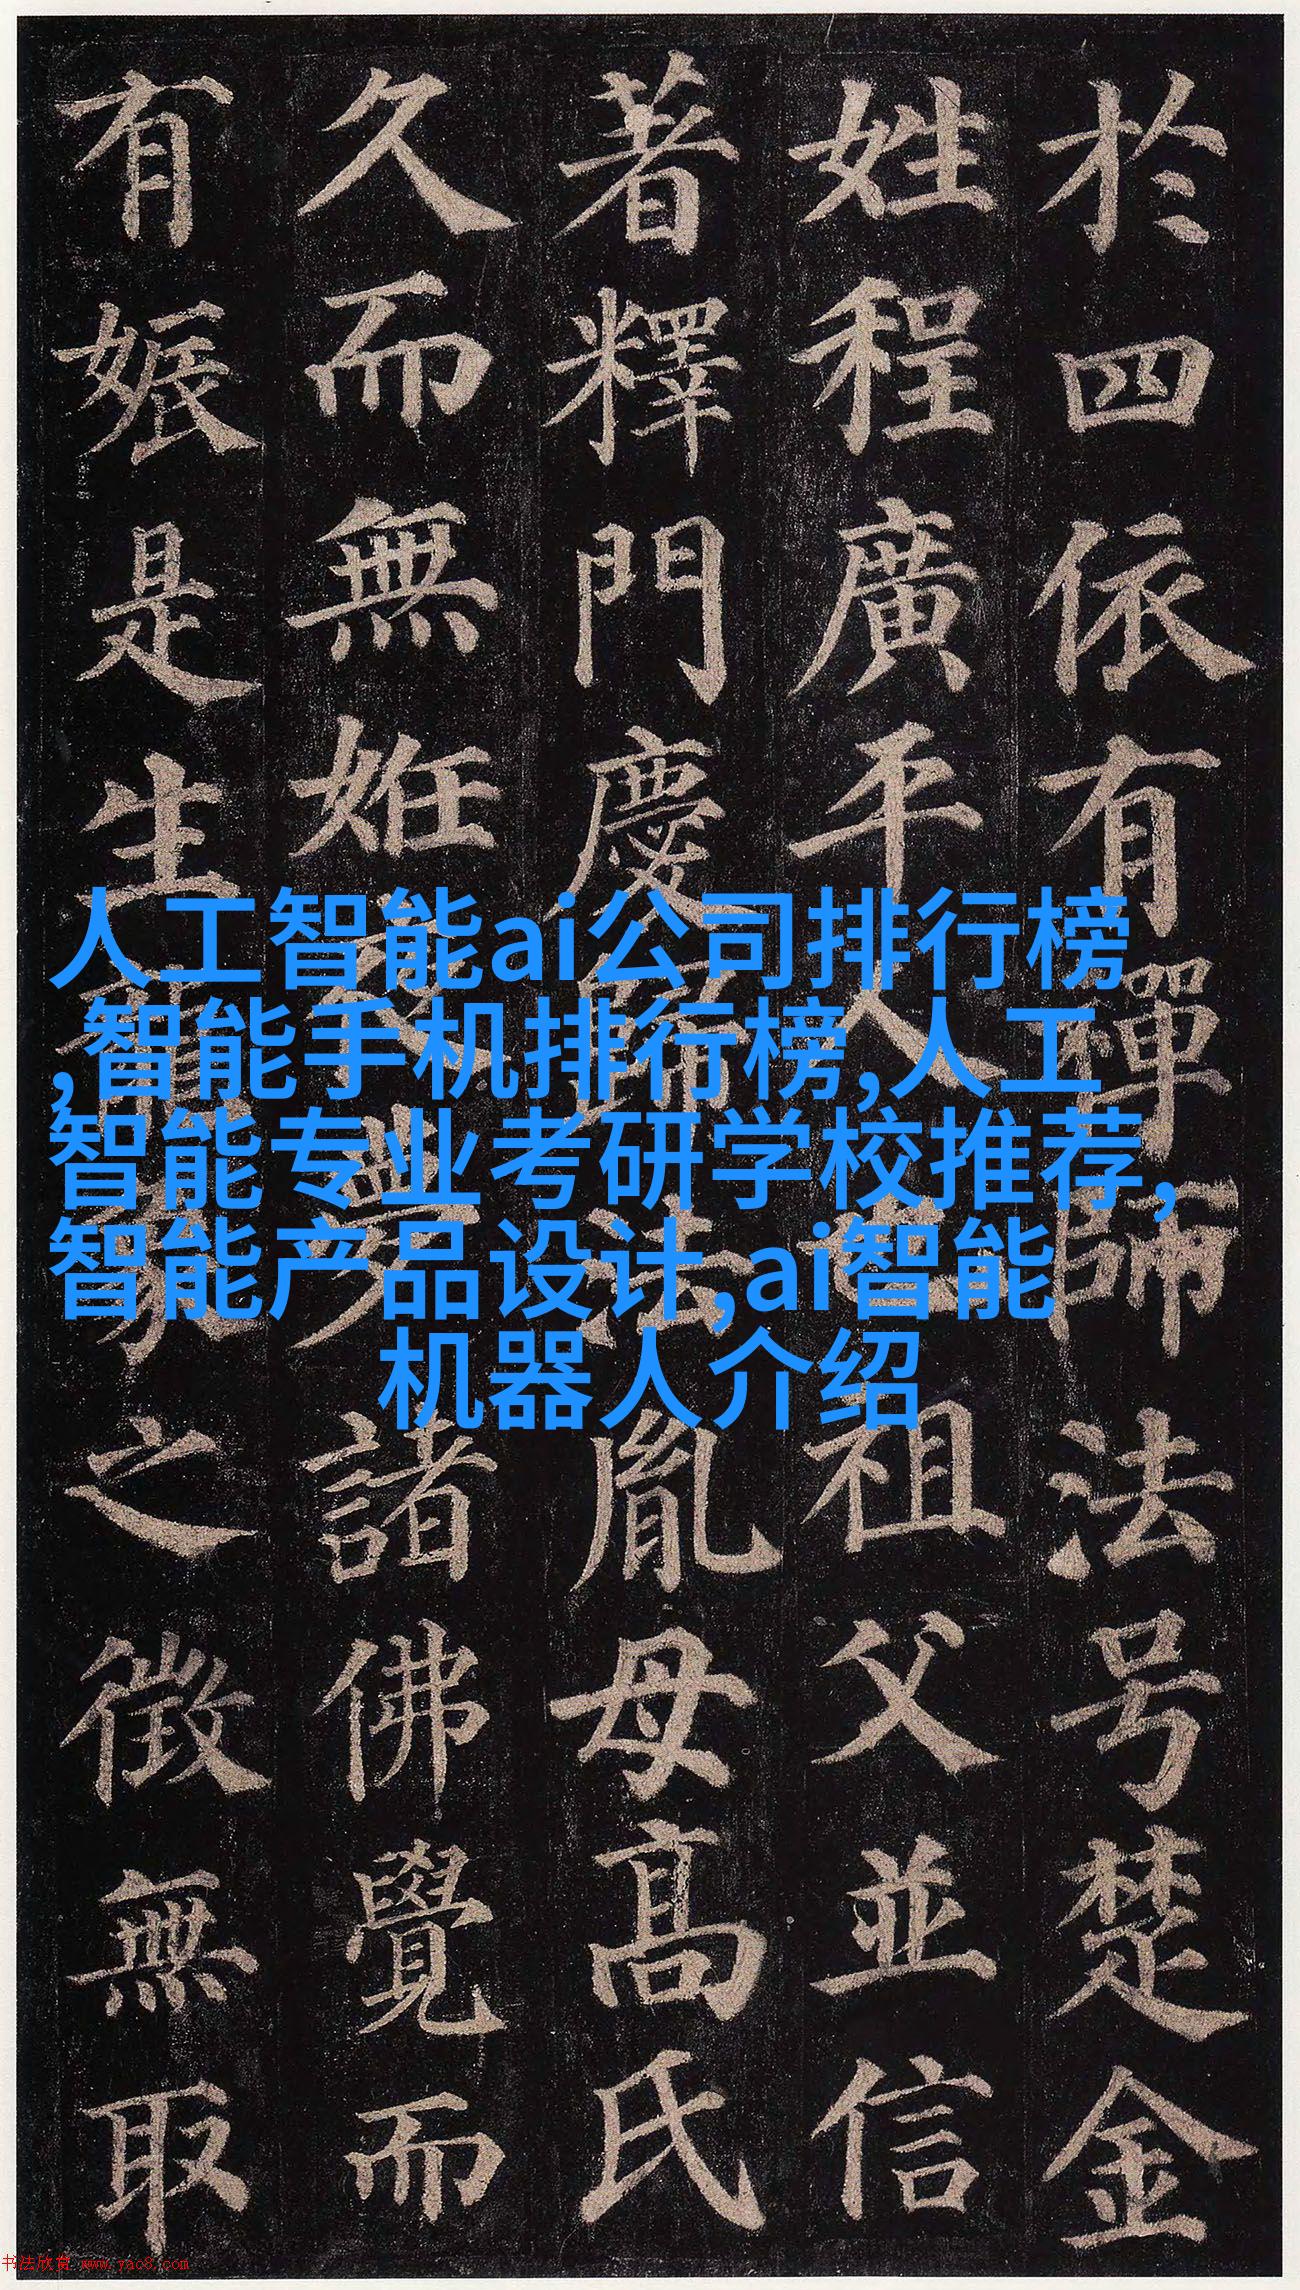 於四依有禪師法号楚金
姓程廣平人也祖父並信
著釋門慶歸法胤母髙氏
久而無姙夜夢諸佛覺而
有娠是生龍象之徵無取
人工智能ai公司排行榜
,智能手机排行榜,人工
智能专业考研学校推荐,
智能产品设计,ai智能
机器人介绍
书法欣赏 www.yac8.com